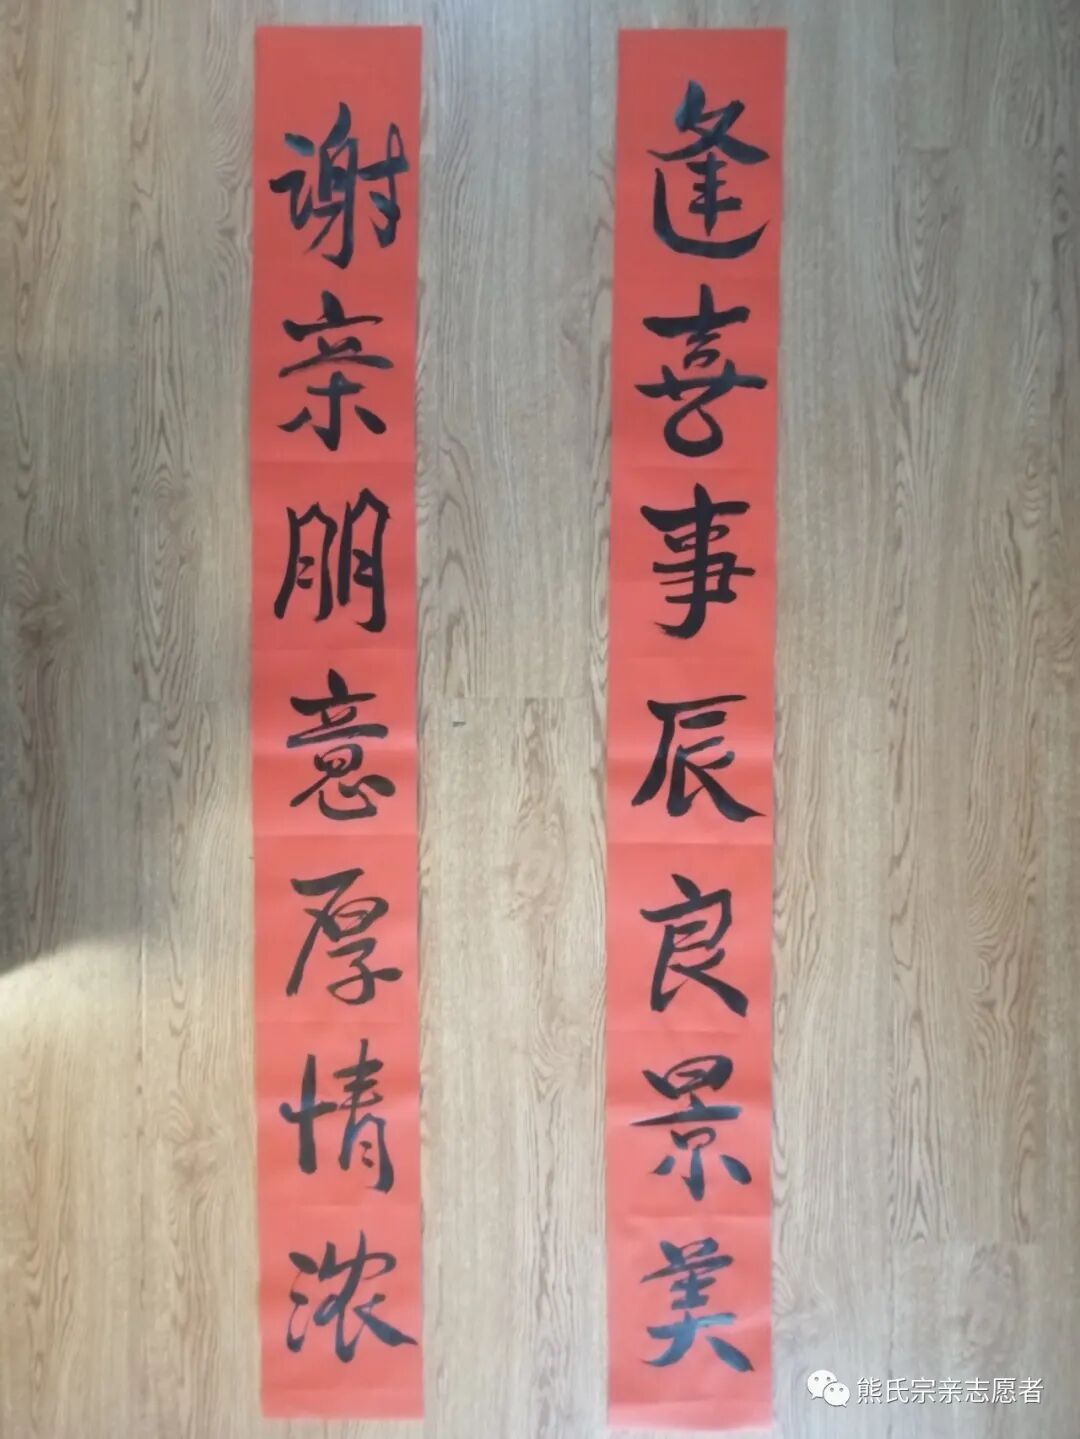 逢喜事辰良景美
谢亲朋意厚情浓
熊氏宗亲志愿者